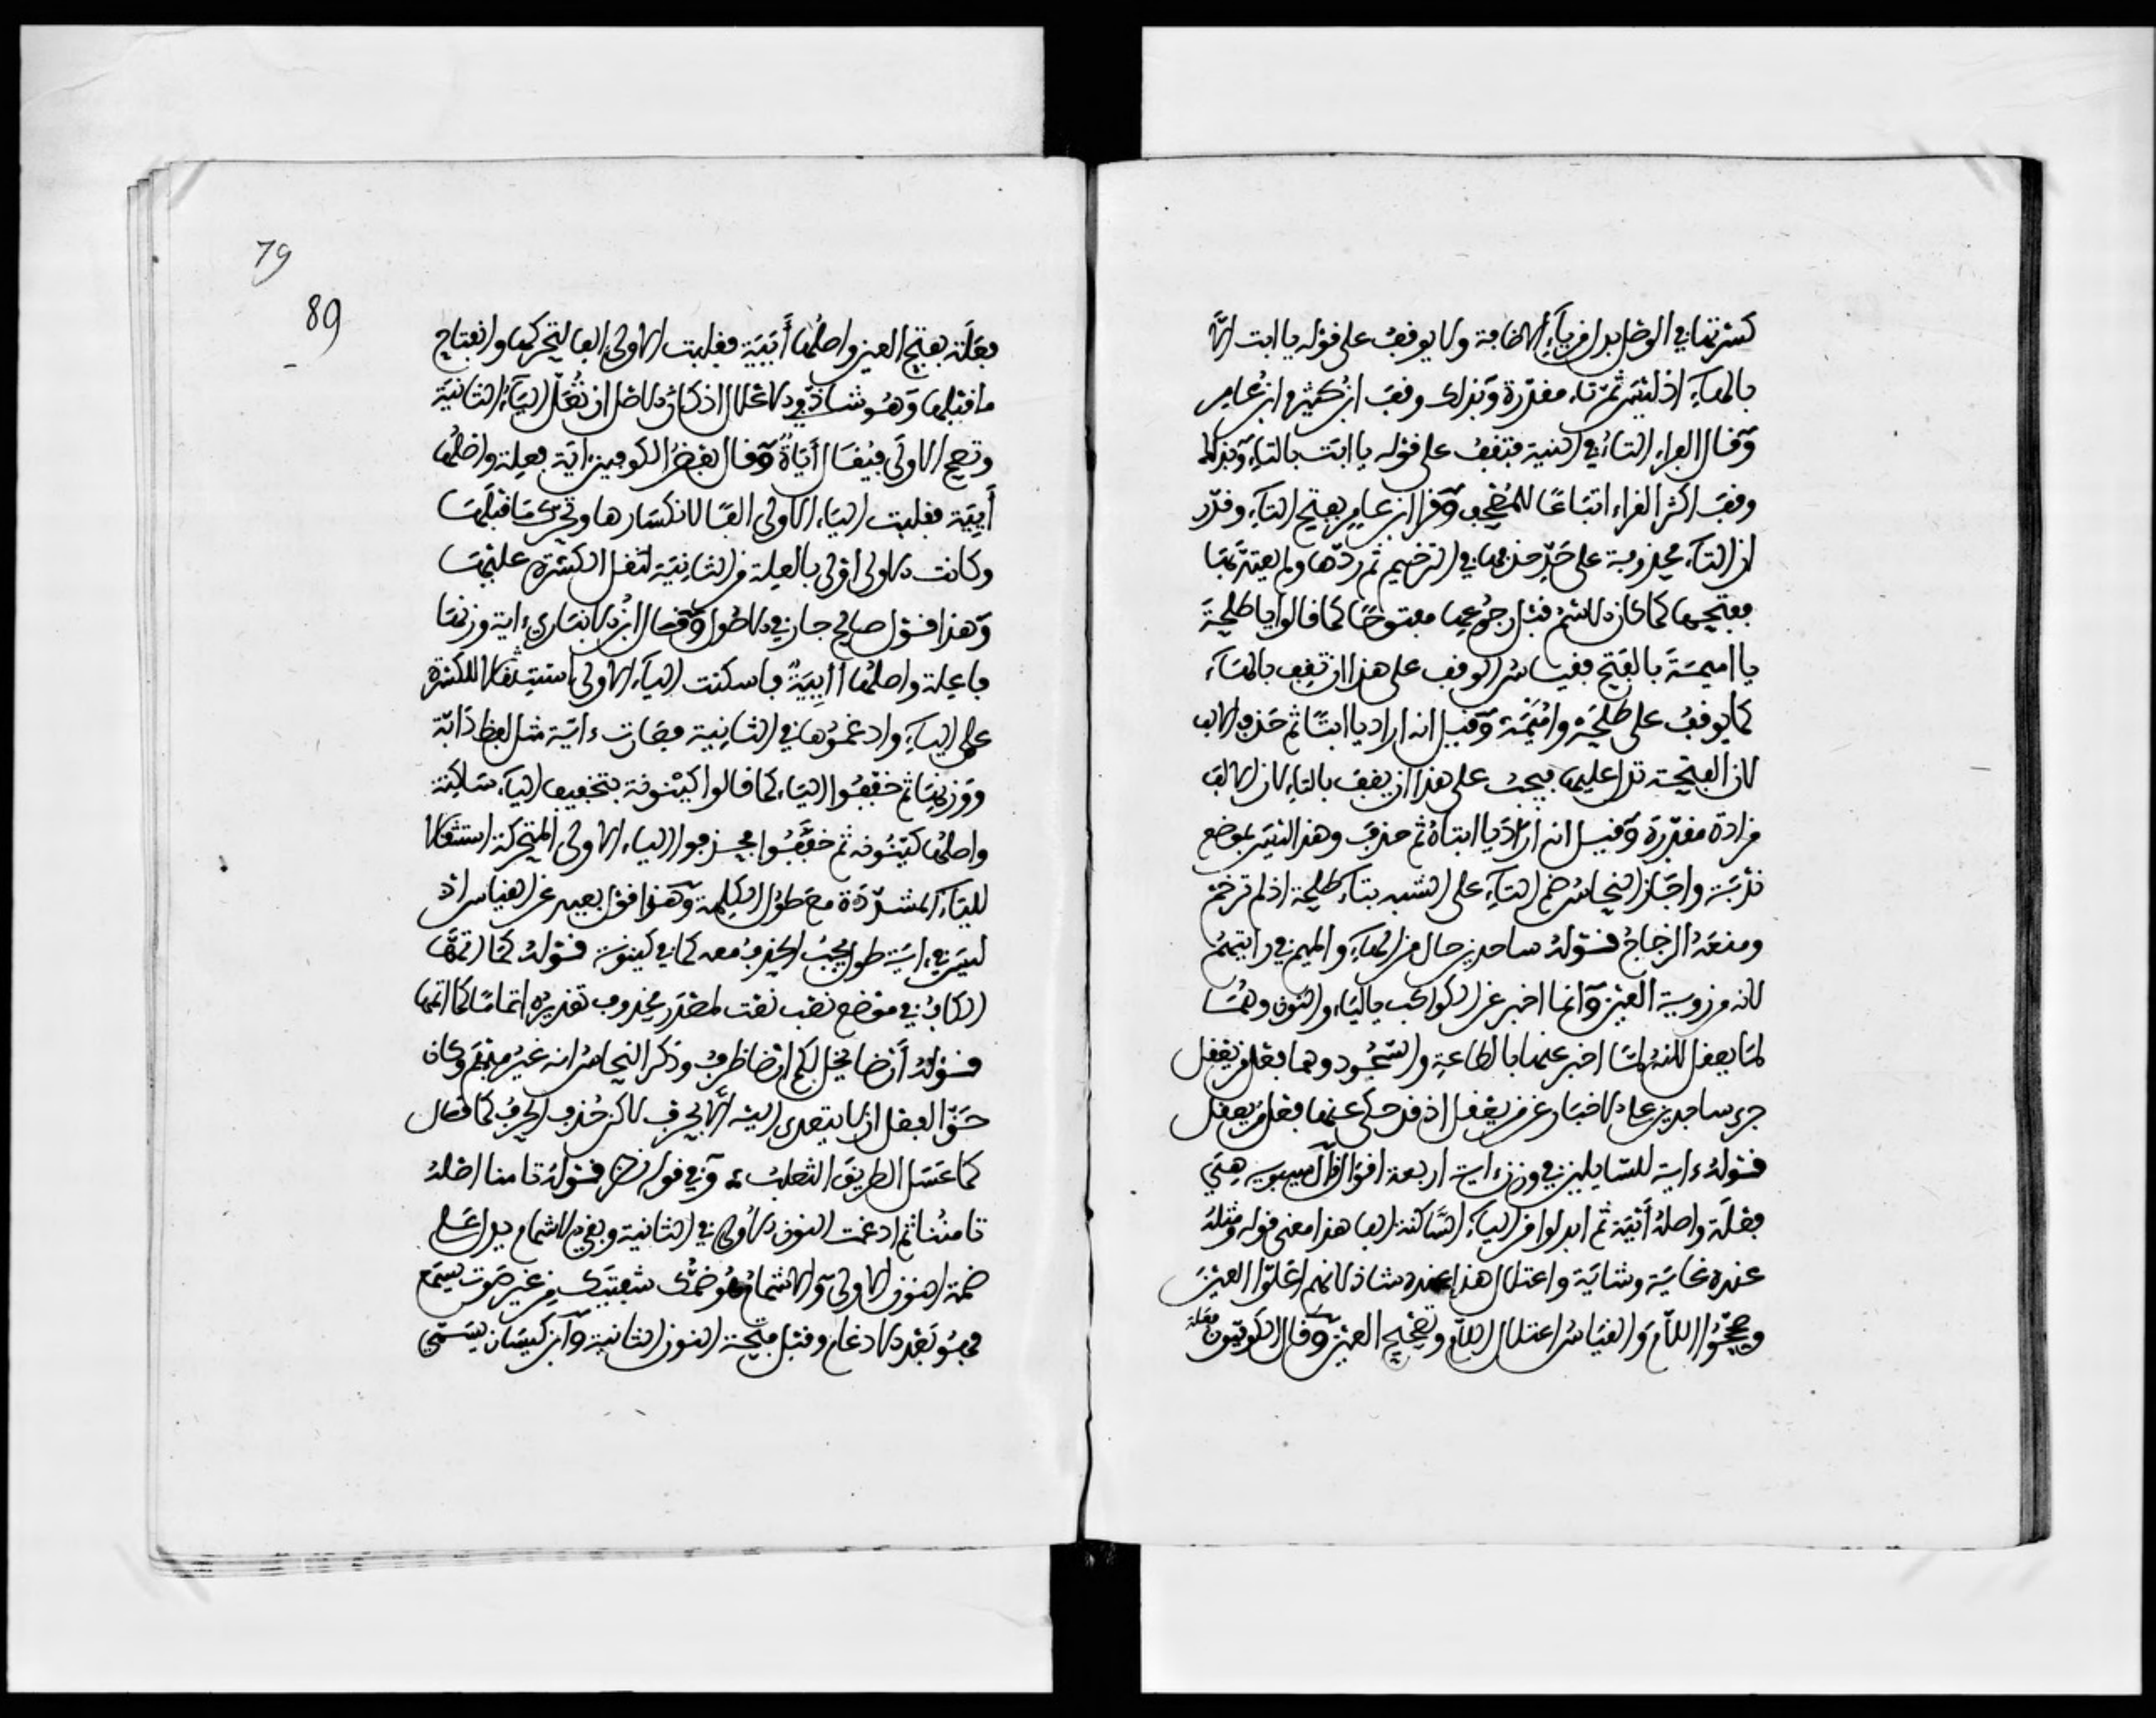 كسرتها في الوصل بدل من ياء الاضافة ولا يوقف على قوله يا ابت الا
بالهاء اذ ليس ثم تاء مقدرة وبذلك وقف ابن كثير وابن عامر
وقال الفراء التاء في النية فتقف على قوله يا ابت بالتاء وبذلك
وقف اكثر القراء اتباعا للمصحف وقرا ابن عامر بفتح التاء وقدر
ان التاء محذوفة على حد حذفها في الترخيم ثم ردها ولم يعتد بها
ففتحها كما كان الاسم قبل رجوعها مفتوحا كما قالوا يا طلحة
يا اميمة بالفتح فقياس الوقف على هذا ان تقف بالهاء
كما يوقف على طلحة واميمة وقيل انه اراد يا ابتا ثم حذف الالف
لان الفتحة تدل عليها فيجب على هذا ان يقف بالتاء لان الالف
مرادة مقدرة وقيل انه اراد يا ابتاه ثم حذف وهذا ليس بموضع
ندبة واجاز النحاس ضم التاء على التشبه بتاء طلحة اذ لم ترخم
ومنعه الزجاج قوله ساجدين حال من الهاء والميم في رايتهم
لانه من روية العين وانما اخبر عن الكواكب بالياء والنون وهما
لما يعقل لانه لما اخبر عنها بالطاعة والسجود وهما فعل من يعقل
جرى ساجدين على الاخبار عن من يعقل اذ قد حكى عنها فعل من يعقل
قوله ءاية للسايلين في وزن ءاية اربعة اقوال قال سيبويه هي
فعلة واصله أيية ثم ابدلوا من الياء الساكنة الفا هذا معنى قوله ومثله
عنده غاية وثاية واعتلال هذا عنده شاذ لانهم اعلوا العين
وصححوا اللام والقياس اعتلال اللام وتصحيح العين وقال الكوفيون فعلة
79
89
فعلة بفتح العين واصلها أيية فقلبت الاولى الفا لتحركها وانفتاح
ما قبلها وهو شاذ في الاعلال اذ كان الاصل ان تعل الياء الثانية
وتصح الاولى فيقال أياة وقال بعض الكوفيين اية فعلة واصلها
أيية فقلبت الياء الاولى الفا لانكسارها وتحرك ما قبلها
وكانت الاولى اولى بالعلة من الثانية لثقل الكسرة عليها
وهذا قول صالح جار في الاصول وقال ابن الانباري ءاية وزنها
فاعلة واصلها أايية فاسكنت الياء الاولى استثقالا للكسرة
على الياء وادغموها في الثانية فصارت ءاية مثل لفظ دابة
ووزنها ثم خففوا الياء كما قالوا كينونة بتخفيف الياء ساكنة
واصلها كينونة ثم خففوا فحذفوا الياء الاولى المتحركة استثقالا
للياء المشددة مع طول الكلمة وهذا قول بعيد عن القياس اذ
ليس في ءاية طول يجب الحذف معه كما في كينونة قوله كما اتمها
الكاف في موضع نصب نعت لمصدر محذوف تقديره اتماما كما اتمها
قوله أرضا يخل لكم ارضا ظرف وذكر النحاس انه غير مبهم وكان
حق الفعل ان لا يتعدى اليه الا بحرف لاكن حذف الحرف كما قال
كما عسل الطريق الثعلب وفي قوله نظر قوله تامنا اصله
تامننا ثم ادغمت النون الاولى في الثانية وبقي الاشمام يدل على
ضمة النون الاولى والاشمام هو ضمك شفتيك من غير صوت يسمع
فهو بعد الادغام وقبل فتحة النون الثانية وابن كيسان يسمي